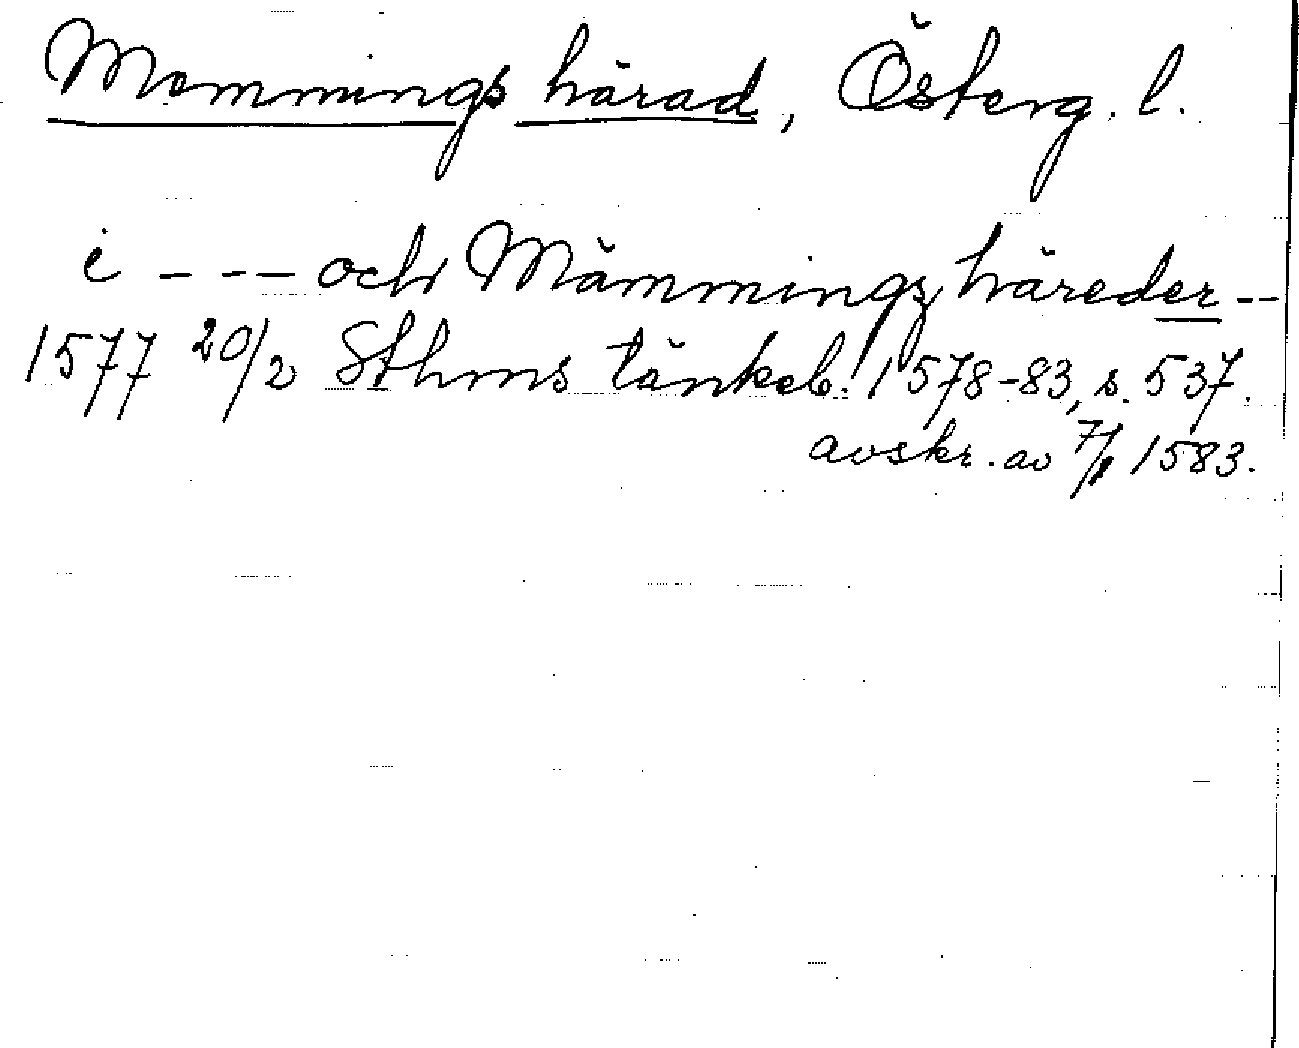 Memmings härad, Österg. l.
i - - - och Mämmingz häreder --
1577 20/2 Sthms tänkeb. 1578-83, s. 537.
avskr. av 7/1 1583.